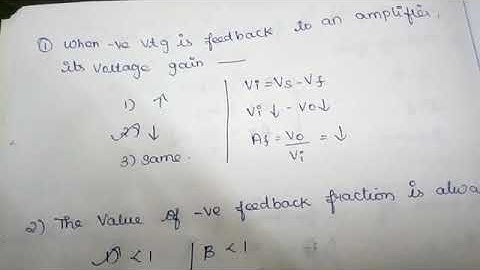 ① When -ve vtg is feedback to an amplifier,
its voltage gain —
1) ↑
2) ↓
3) same.
Vi = Vs - Vf
Vi ↓ - Vo ↓
Af = Vo/Vi = ↓
2) The value of -ve feedback fraction is alwa
1) < 1
B < 1